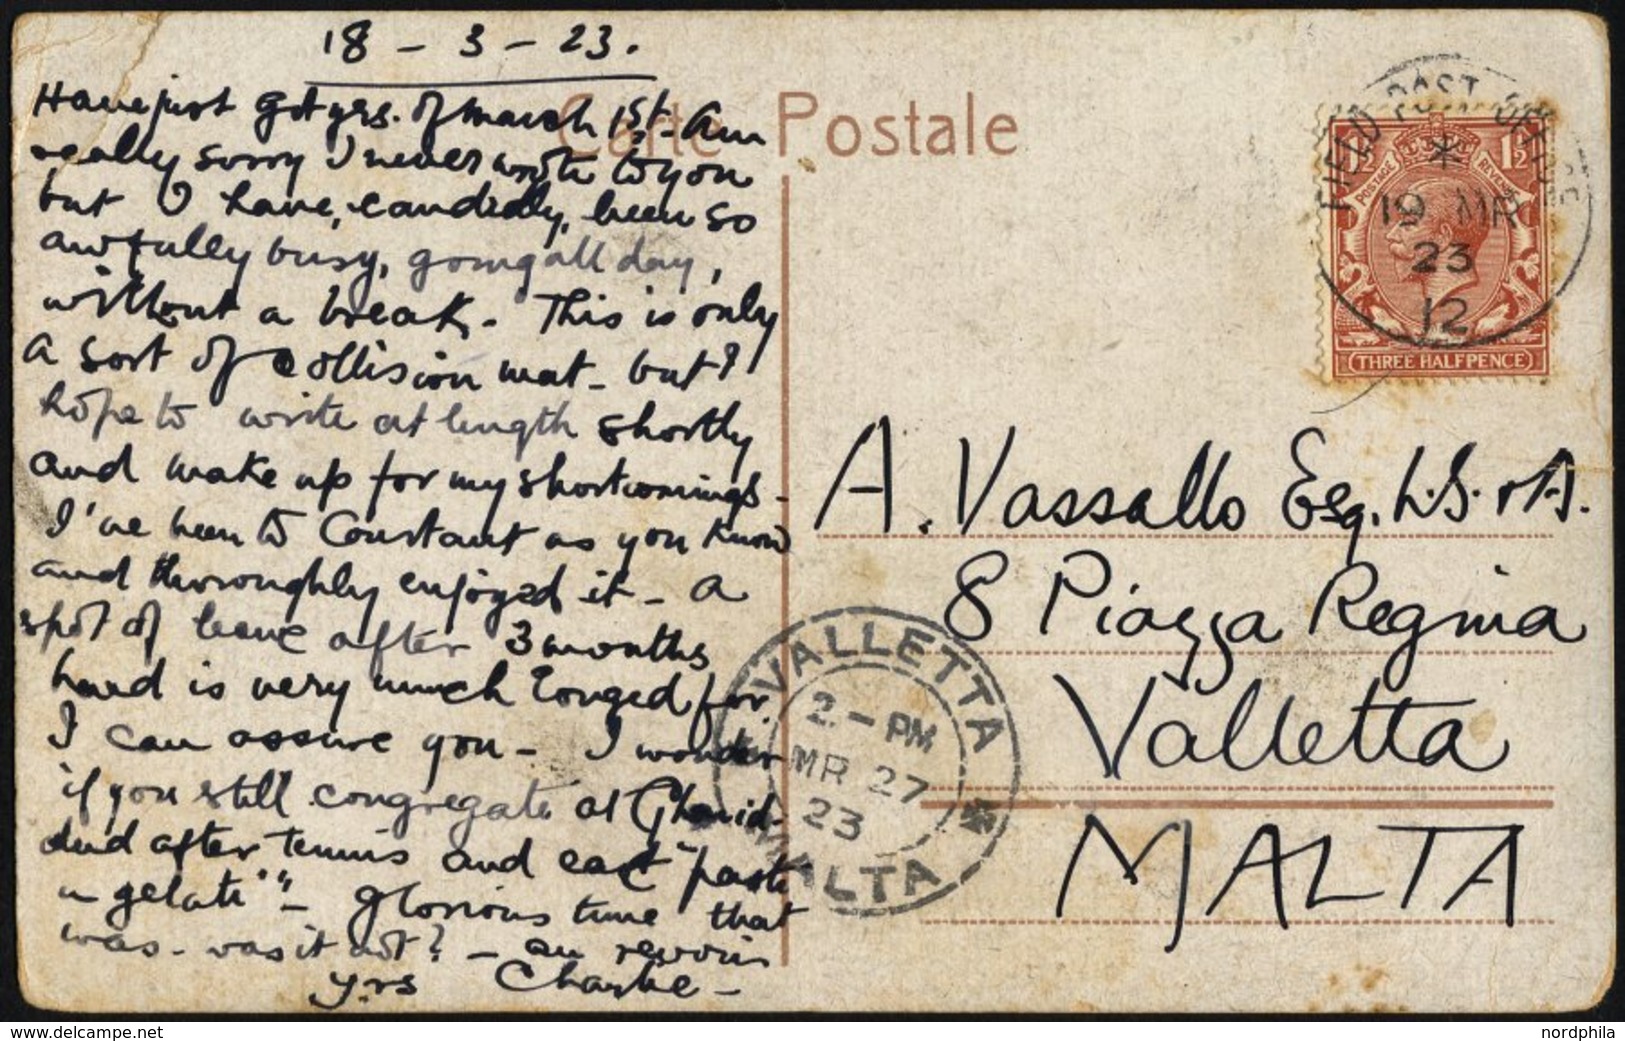 18 - 3 - 23.
Have just got yrs. of March 1st - Am
really sorry I never wrote to you
but I have, candidly, been so
awfully busy, going all day,
without a break. This is only
a sort of collision mat - but I
hope to write at length shortly
and make up for my shortcomings -
I've been to Constant as you know
and thoroughly enjoyed it - a
spot of leave after 3 months
hard is very much longed for
I can assure you - I wonder
if you still congregate at Ghavid -
and after tennis and eat "paste
n gelati" - glorious time that
was - was it not? - au revoir
yrs Charlie -
Carte Postale
FIELD POST OFFICE
*
19 MR
23
12
POSTAGE REVENUE
1½ 1½
THREE HALFPENCE
A. Vassallo Esq. L.S. & A.
8 Piazza Regina
Valletta
MALTA
VALLETTA
2 - PM
MR 27
23
MALTA
delcampe.net
nordphila